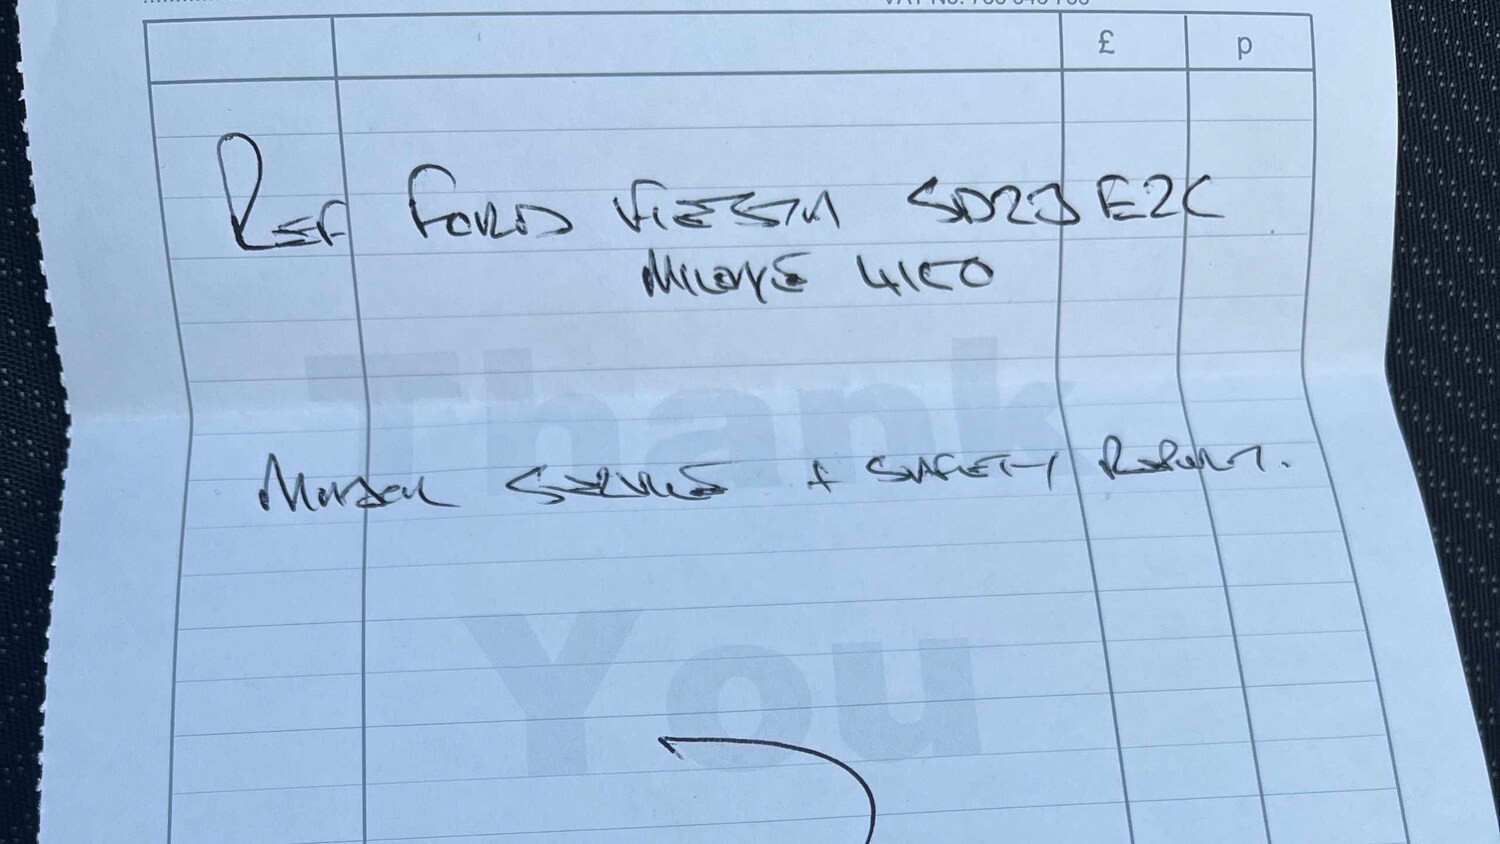 £ p
REF FORD FIESTA SD23 EZC
MILEAGE 4150
SERVICE + SAFETY REPORT.
Thank
You